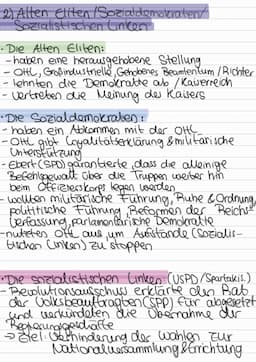 2) Alten Eliten/Sozialdemokraten/
Sozialistischen Linken
• Die Alten Eliten:
- haben eine herausgehobene Stellung
- OHL, Großindustrielle, Gehobenes Beamtentum/Richter
- lehnten die Demokratie ab / Kaiserreich
- Vertreten die Meinung des Kaisers
• Die Sozialdemokraten:
- haben ein Abkommen mit der OHL
- OHL gibt Loyalitätserklärung & militärische
Unterstützung
- Ebert (SPD) garantierte, dass die alleinige
Befehlsgewalt über die Truppen weiter hin
beim Offizierskorps liegen werden
- wollten militärische Führung, Ruhe & Ordnung,
politische Führung, Reformen der Reichs-
verfassung, parlamentarische Demokratie
- nutzten OHL aus um Aufstände (Sozialis-
tischen Linken) zu stoppen
• Die sozialistischen Linken: (USPD/Spartakis.)
- Revolutionsausschuss erklärte den Rat
der Volksbeauftragten (SPD) für abgesetzt
und verkündeten die Übernahme der
Regierungsgeschäfte
→ Ziel: Verhinderung der Wahlen zur
Nationalversammlung & Errichtung